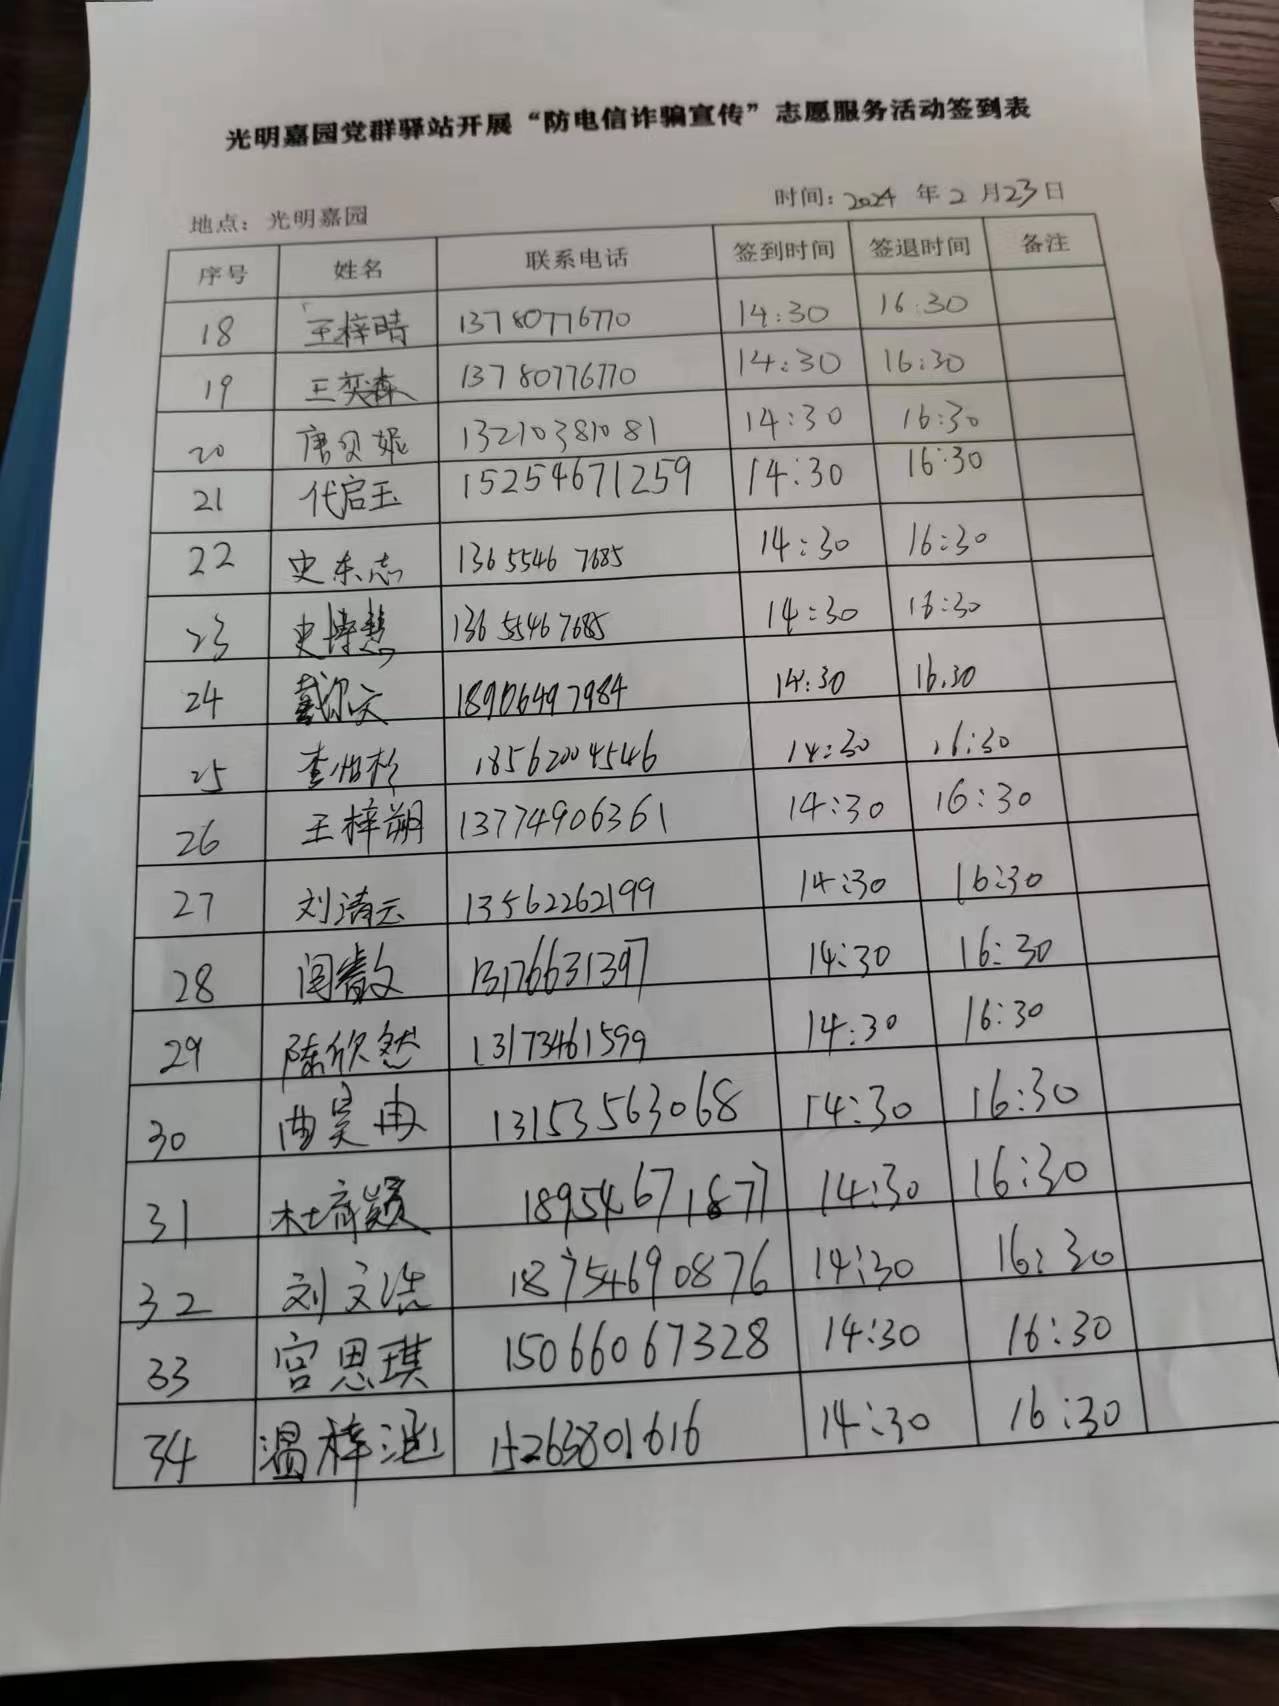 光明嘉园党群驿站开展“防电信诈骗宣传”志愿服务活动签到表
地点：光明嘉园 时间：2024 年 2 月 23 日
序号 姓名 联系电话 签到时间 签退时间 备注
18 王梓晴 13780776770 14:30 16:30
19 王奕森 13780776770 14:30 16:30
20 唐贝妮 13210381081 14:30 16:30
21 代启玉 15254671259 14:30 16:30
22 史东志 13655467685 14:30 16:30
23 史博慧 13655467685 14:30 16:30
24 戴尔文 18906497984 14:30 16:30
25 18562004546 14:30 16:30
26 王梓朔 13774906361 14:30 16:30
27 刘清云 13562262199 14:30 16:30
28 闫睿文 13176631397 14:30 16:30
29 陈欣然 13173461599 14:30 16:30
30 曲昊冉 13153563068 14:30 16:30
31 杜奇颖 18954671877 14:30 16:30
32 刘文浩 18754690876 14:30 16:30
33 宫思琪 15066067328 14:30 16:30
34 温梓涵 15263801616 14:30 16:30